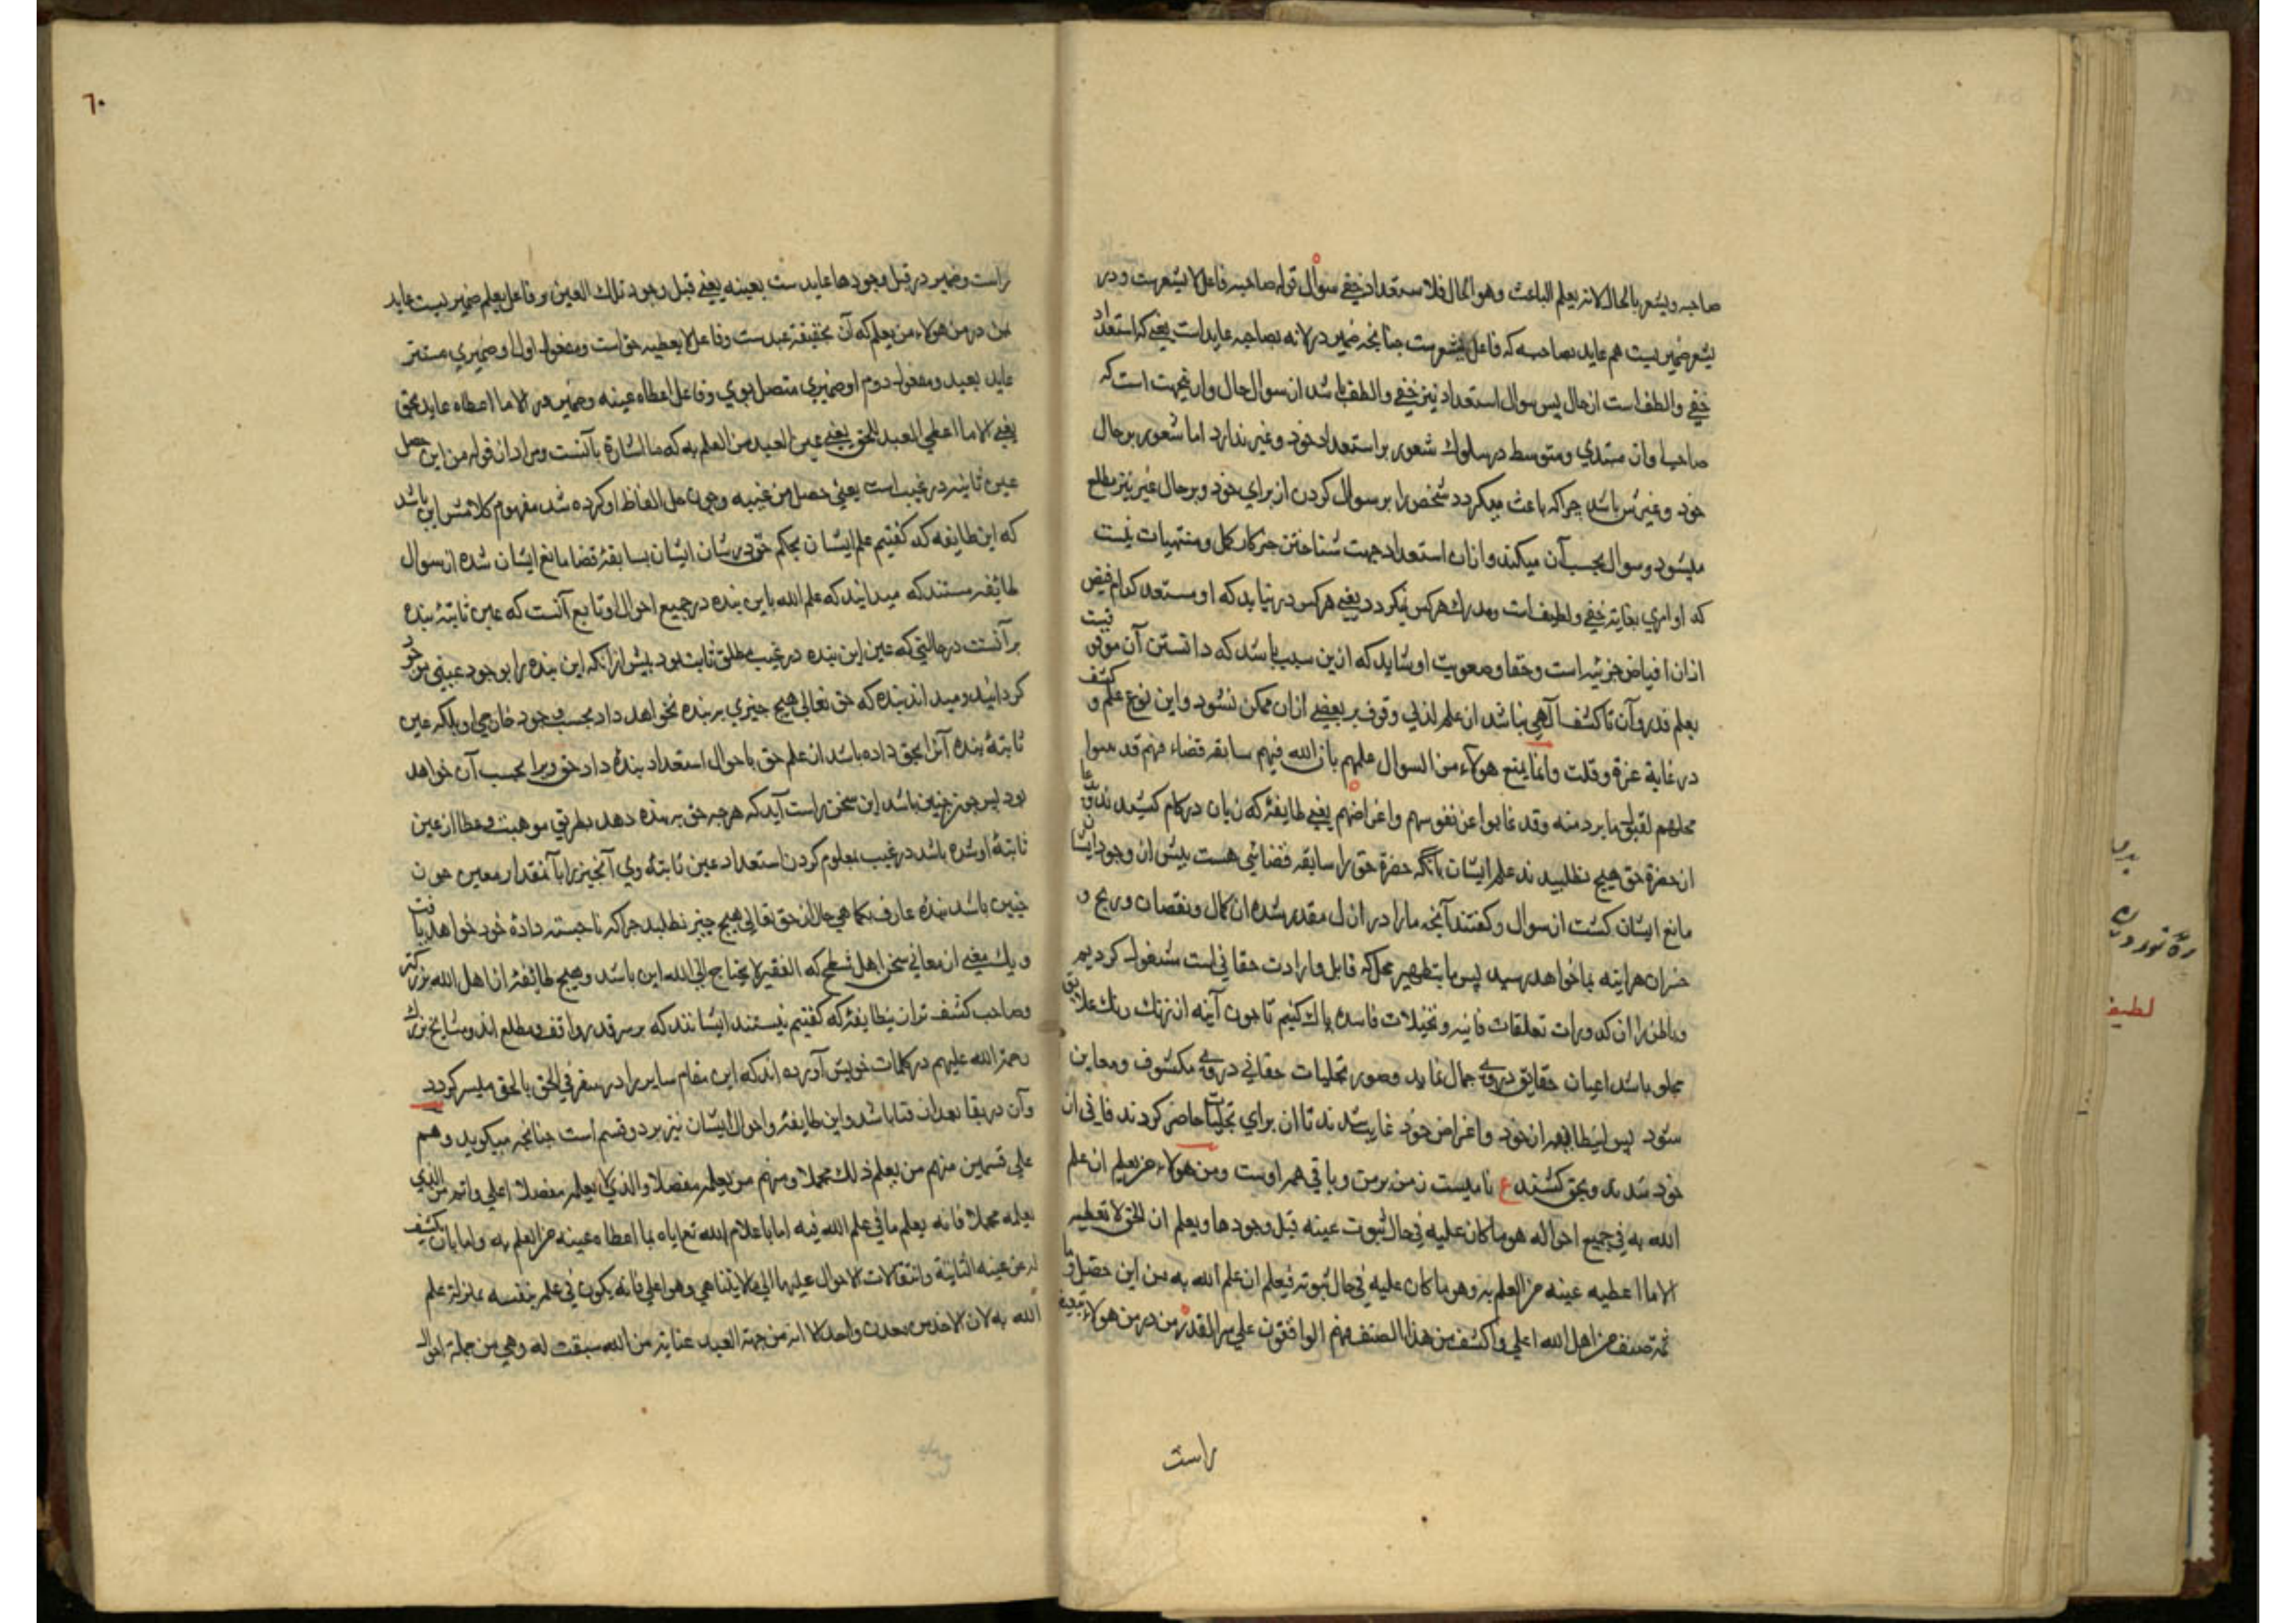 صاحبه ويشعر بالحال لانه يعلم الباعث وهو الحال فلاستعداد خفي سوال قوله صاحبه فاعل لا يشعرست و در
يشعر ضمير يست هم عايد بصاحبه كه فاعل يشعرست چنانچه ضمير در لانه بصاحبه عايد است يعني كه استعداد
خفي والطف است از حال پس سوال استعداد نيز خفي والطف باشد از سوال حال و ازينجهت است كه
صاحب آن مبتدي ومتوسط در سلوك شعور بر استعداد خود وغير ندارد اما شعور بر حال
خود و غيرش باشد چراكه باعث ميكردد شخص را بر سوال كردن از براي خود و بر حال غير نيز مطلع
ميشود و سوال بحسب آن ميكند و ازان استعداد جهت شناختن جز كار كمل و منتهيات نيست
كه او امري بغايت خفي و لطيف است ومدرك هر كس نيكردد يعني هركس درنيابد كه او مستعد كدام فيض
ازان افياض جزئيه است وخفا وصعوبت او شايد كه ازين سبب باشد كه دانستن آن موقوفيست
بعلم قدر وآن تا كشف آلهي نباشد از علم لدني وقوف بر بعضي ازان ممكن نشود واين نوع علم و كشف
در غاية عزة وقلت وانما يمنع هولاء من السوال علمهم بان الله فيهم سابقة قضاء فهم قد هيوا
محلهم لقبول ما يرد منه وقد غابوا عن نفوسهم واغراضهم يعني طايفهٔ كه زبان در كام كشيدند و
از حضرة حق هيچ نطلبيدند علم ايشان بآنكه حضرة حق را سابقه قضائي هست پيش از وجود ايشان
مانع ايشان كشت از سوال وكفتند آنچه مارا در ازل مقدر شده از كمال ونقصان وربح و
خسران هراينه بما خواهد رسيد پس ما بتطهير محل كه قابل واردات حقاني است مشغول كرديم
وباطن را از كدورات تعلقات فانيه وتخيلات فاسده پاك كنيم تا چون آينه از زنك رنك علايق
مجلو باشد اعيان حقايق دروي جمال نمايد وصور تجليات حقاني دروي مكشوف ومعاين
شود پس اين طايفه از خود واغراض خود غايب شدند تا از براي تجليات حاضر كردند فاني از
خود شدند وبحق كشتند ع ناميست ز من بر من وباقي همه اوست ومن هولاء من يعلم ان علم
الله به في جميع احواله هو ما كان عليه في حال ثبوت عينه قبل وجودها ويعلم ان الحق لا تعطيه
الا ما اعطيه عينه من العلم به وهو ما كان عليه في حال ثبوته فيعلم ان علم الله به من اين حصل وما
ثمة صنف من اهل الله اعلي واكشف من هذا الصنف فهم الواقفون علي سر القدر من در من هولاء
راست
٦٠
راست وضمير در قبل وجودها عايدست بعينه يعني قبل وجود تلك العين وفاعل يعلم ضمير يست عايد
بمن در من هولاء من يعلم كه آن بحقيقة عبدست وفاعل لا يعطيه حق است ومفعول اول او ضميري مستتر
عايد بعبد ومفعول دوم او ضميري متصل بوي وفاعل اعطاه عينه وضمير در الا ما اعطاه عايد بحق
يعني الا ما اعطي العبد للحق يعني عين العبد من العلم به كه ما اشارة بآنست ومراد از قوله من اين حصل
عين ثابته در غيب است يعني حصل من غيبه وچون حل الفاظ او كرده شد مفهوم كلامش اين باشد
كه اين طايفه كه كفتيم علم ايشان بحكم حق در شان ايشان بسابقهٔ قضا مانع ايشان شده از سوال
طايفه هستند كه ميدانند كه علم الله باين بنده در جميع احوال او تابع آنست كه عين ثابتهٔ بنده
برآنست در حالتي كه عين اين بنده در غيب مطلق ثابت بود پيش از آنكه اين بنده را بوجود عيني موجود
كردانيد وميداند بنده كه حق تعالي هيچ چيزي بر بنده نخواهد داد بحسب وجود خارجي او بلكه عين
ثابتهٔ بنده آنرا بحق داده باشد از علم حق باحوال استعداد بنده داد حق ويرا بحسب آن خواهد
بود پس چون چنين باشد اين سخن راست آيد كه هرچه حق به بنده دهد بطريق موهبت وعطا از عين
ثابتهٔ او شده باشد در غيب بمعلوم كردن استعداد عين ثابتهٔ وي آنچيز را بآنمقدار معين چون
چنين باشد بندهٔ عارف بكما هي حال از حق تعالي هيچ چيز نطلبد چراكه ناجسته دادهٔ خود خواهد يافت
ويك معني از معاني سخن اهل شطح كه الفقير لا يحتاج الي الله اين باشد وهيچ طايفهٔ از اهل الله بزركتر
وصاحب كشف تر ازين طايفهٔ كه كفتيم نيستند ايشانند كه بر سر قدر واقف ومطلع اند ومشايخ بزرك
رحمة الله عليهم در كلمات خويش آورده اند كه اين مقام ساير را در سفر في الحق بالحق ميسر كردد
وآن در بقا بعد از فنا باشد واين طايفهٔ واحوال ايشان نيز بر دو قسم است چنانچه ميكويد وهم
علي قسمين منهم من يعلم ذلك مجملا ومنهم من يعلمه مفصلا والذي يعلمه مفصلا اعلي واتم من الذي
يعلمه مجملا فانه يعلم ما في علم الله فيه اما باعلام الله تع اياه بما اعطاه عينه من العلم به واما بان يكشف
له عن عينه الثابتة وانتقالات الاحوال عليها الي ما لا يتناهي وهو اعلي فانه يكون في علمه بنفسه بمنزلة علم
الله به لان الاخذ من معدن واحد الا انه من جهة العبد عناية من الله سبقت له وهي من جملة احوال
لطيفه